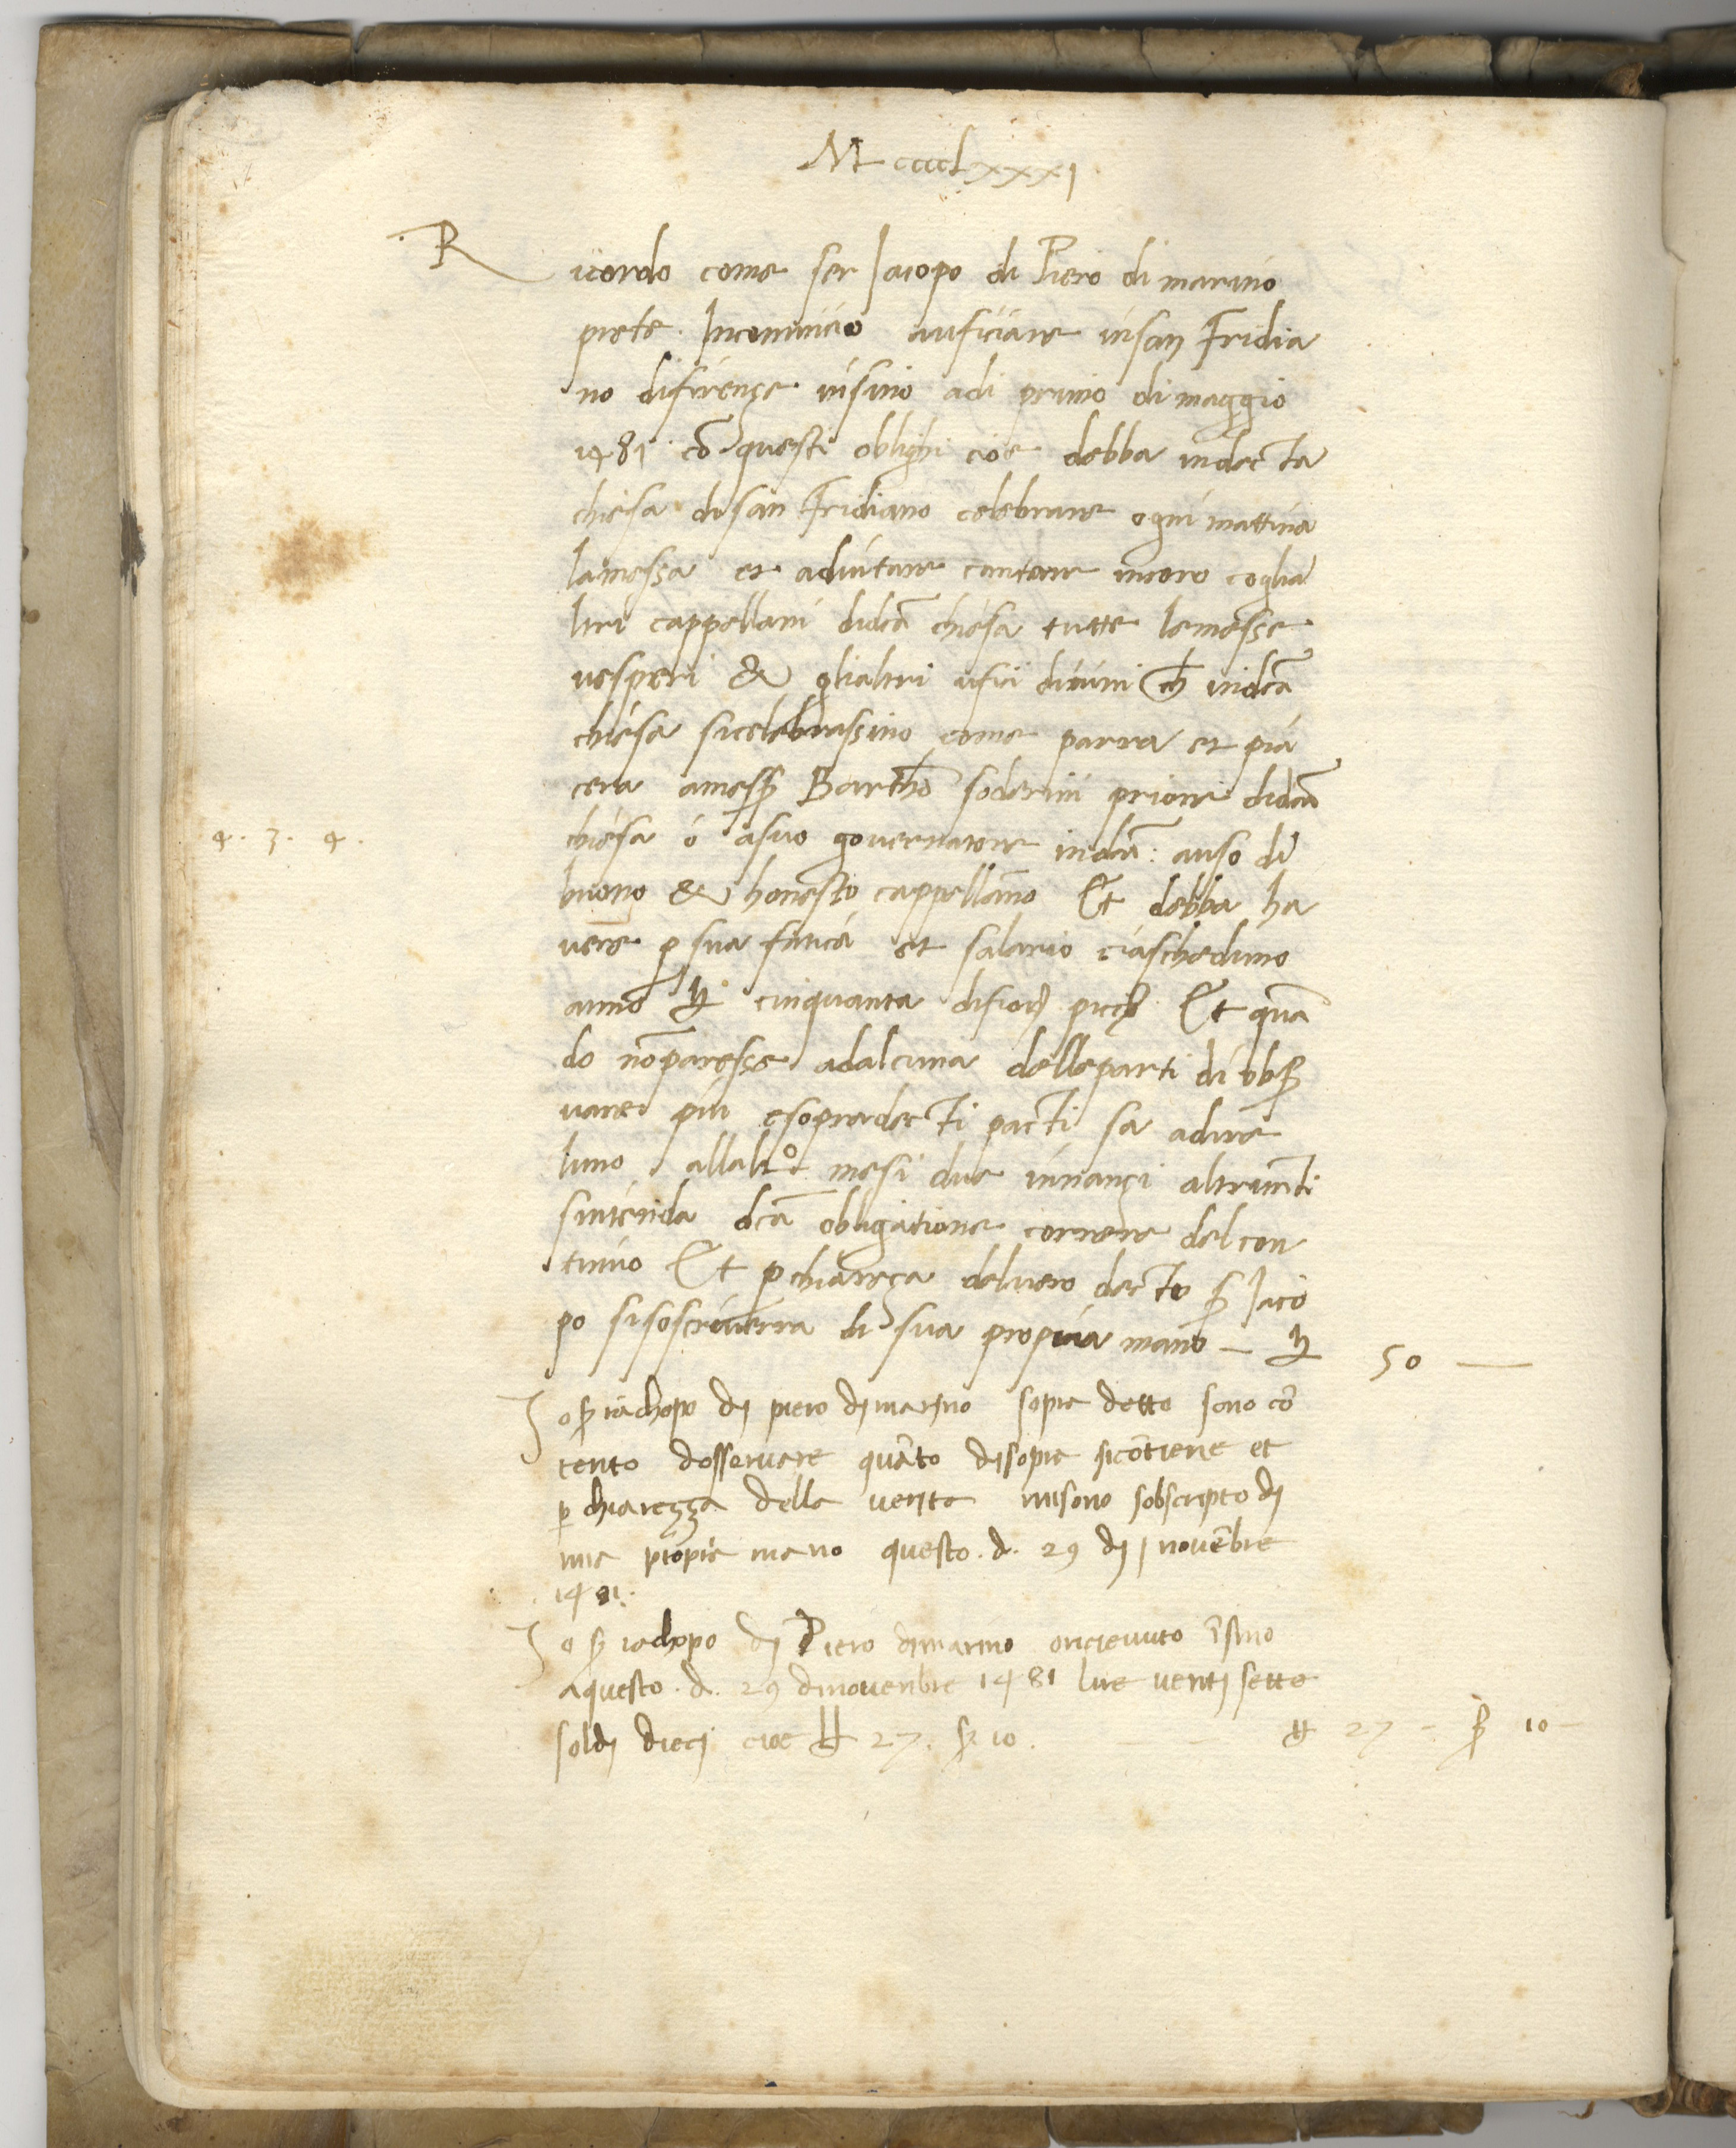 MccccLxxxj
Ricordo come ser Jacopo di Piero di marino
prete Incomincio auficiare insan Fridia
no difirençe insino adi primo di maggio
1481 cō questi oblighi cioe debba indecta
chiesa disan Fridiano celebrare ogni mattina
lamessa et adiutare cantare incoro coglia
ltri cappellani didc̄a chiesa tutte lemesse
vesperi & glialtri ufici diuini ch̄ indc̄a
chiesa sicelebrassino come parra et pia
cera amess̄ Bartho soderini priore didc̄a
4. 3. 4.
chiesa o asuo governatore indc̄a: auso di
buono & honesto cappellano Et debba ha
vere p̄ sua fatica et salario ciascheduno
anno ℔ cinquanta difior̄ picc̄ Et quā
do nōparesse adalcuna delleparti di obs̄
vare piu esopradecti pacti sa adire
luno allaltº mesi due innançi altrimēti
sintenda dc̄a obligatione correre delcon
tinuo Et p̄chiareça delvero decto s̄ Jaco
po sisoscriverra di sua propria mano — ℔ 50 —
Io s̄ iachopo dj piero djmarjno sopra detto sono cō
tento dosservare quāto djsopra sicōtiene et
p̄ chiarezza della verita misono sobscripto dj
mia propia mano questo .d. 29 dj novēbre
1481.
Io s̄ iachopo dj Piero djmarino oricievuto īsino
aquesto .d. 29 dinovenbre 1481 lire ventj sette
soldj diecj cioe ℔ 27. s̄ 10. ℔ 27 - s̄ 10 -